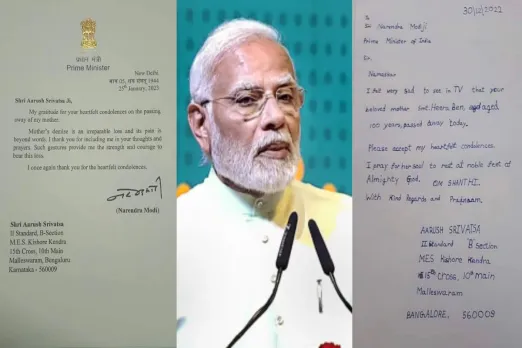 प्रधान मंत्री
Prime Minister
New Delhi
माघ 05, शक 1944
25th January, 2023
Shri Aarush Srivatsa Ji,
My gratitude for your heartfelt condolences on the passing
away of my mother.
Mother's demise is an irreparable loss and its pain is
beyond words. I thank you for including me in your thoughts and
prayers. Such gestures provide me the strength and courage to
bear this loss.
I once again thank you for the heartfelt condolences.
(Narendra Modi)
Shri Aarush Srivatsa
II Standard, B-Section
M.E.S. Kishore Kendra
15th Cross, 10th Main
Malleswaram, Bengaluru
Karnataka - 560009
30/12/2022
To
Sri Narendra Modiji
Prime Minister of India
Namaskar
I felt very sad to see in TV that your
beloved mother Smt. Heera Ben, aged
100 years, passed away today.
Please accept my heartfelt condolences.
I pray for her soul to rest at noble feet of
Almighty God. OM SHANTHI.
With kind regards and Pranaam.
AARUSH SRIVATSA
II Standard 'B' Section
MES Kishore Kendra
15th Cross, 10th main
Malleswaram
BANGALORE, 560009